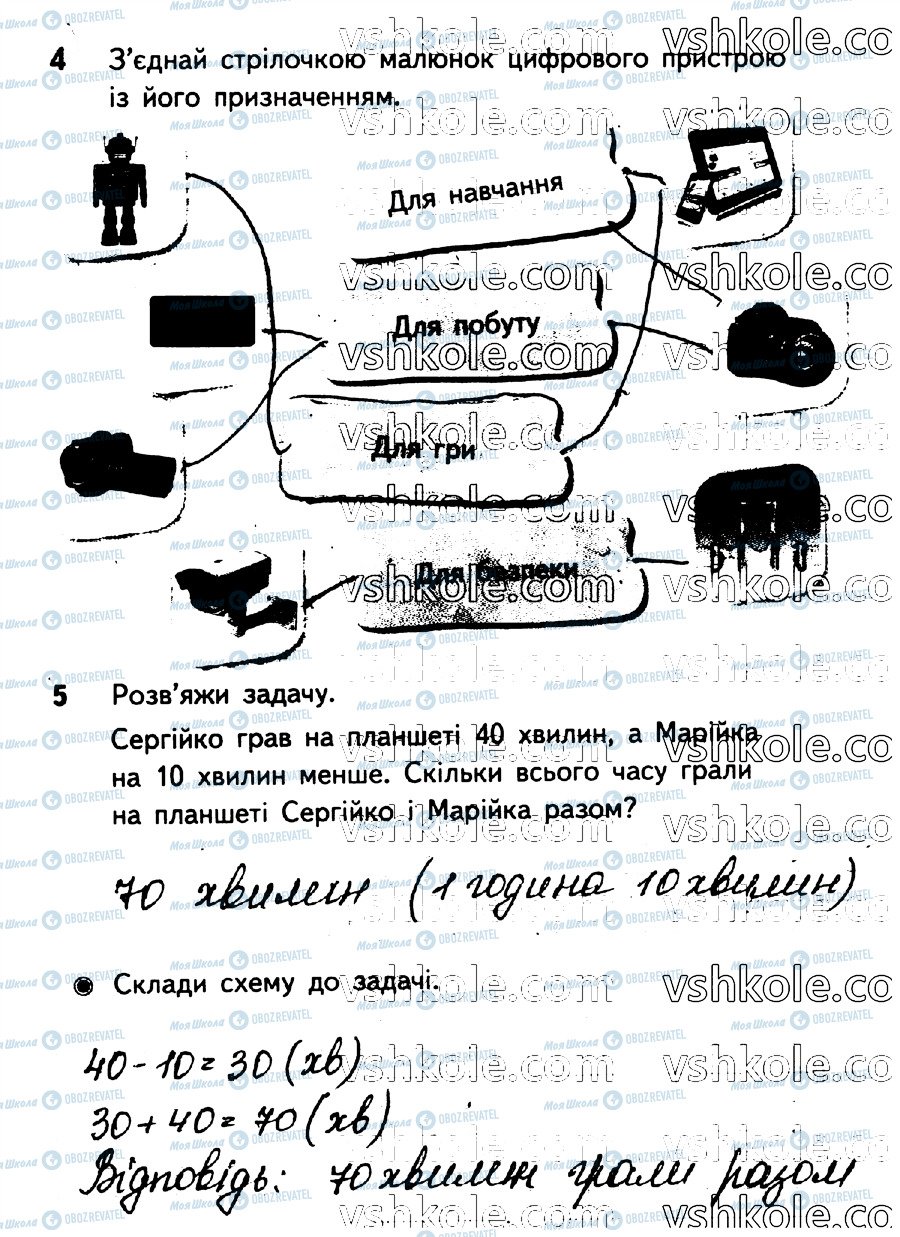 4 З'єднай стрілочкою малюнок цифрового пристрою
із його призначенням.
Для навчання
Для побуту
Для гри
Для безпеки
5 Розв'яжи задачу.
Сергійко грав на планшеті 40 хвилин, а Марійка
на 10 хвилин менше. Скільки всього часу грали
на планшеті Сергійко і Марійка разом?
70 хвилин (1 година 10 хвилин)
Склади схему до задачі.
40 - 10 = 30 (хв)
30 + 40 = 70 (хв)
Відповідь: 70 хвилин грали разом
vshkole.com
МояШкола OBOZREVATEL